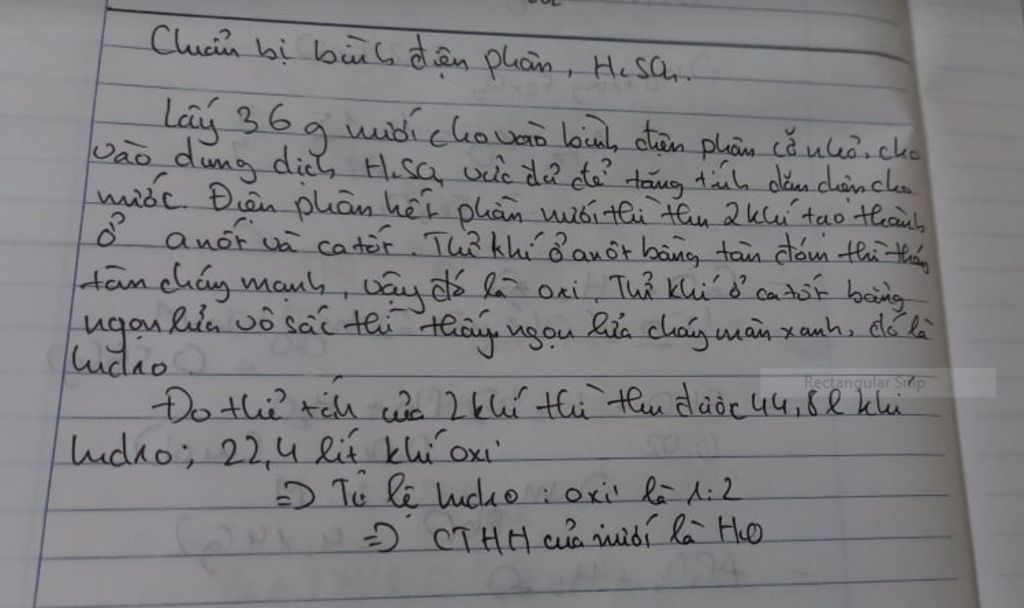 Chuẩn bị bình điện phân, H₂SO₄.
Lấy 36 g nước cho vào bình điện phân cỡ nhỏ, cho
vào dung dịch H₂SO₄ vừa đủ để tăng tính dẫn điện cho
nước. Điện phân hết phần nước thì thu 2 khí tạo thành
ở anốt và catốt. Thử khí ở anốt bằng tàn đóm thì thấy
tàn cháy mạnh, vậy đó là oxi. Thử khí ở catốt bằng
ngọn lửa vô sắc thì thấy ngọn lửa cháy màn xanh, đó là
hidro
Đo thể tích của 2 khí thì thu được 44,8l khí
hidro; 22,4 lít khí oxi
=> Tỉ lệ hidro : oxi là 1:2
=> CTHH của nước là H₂O
Rectangular Snip